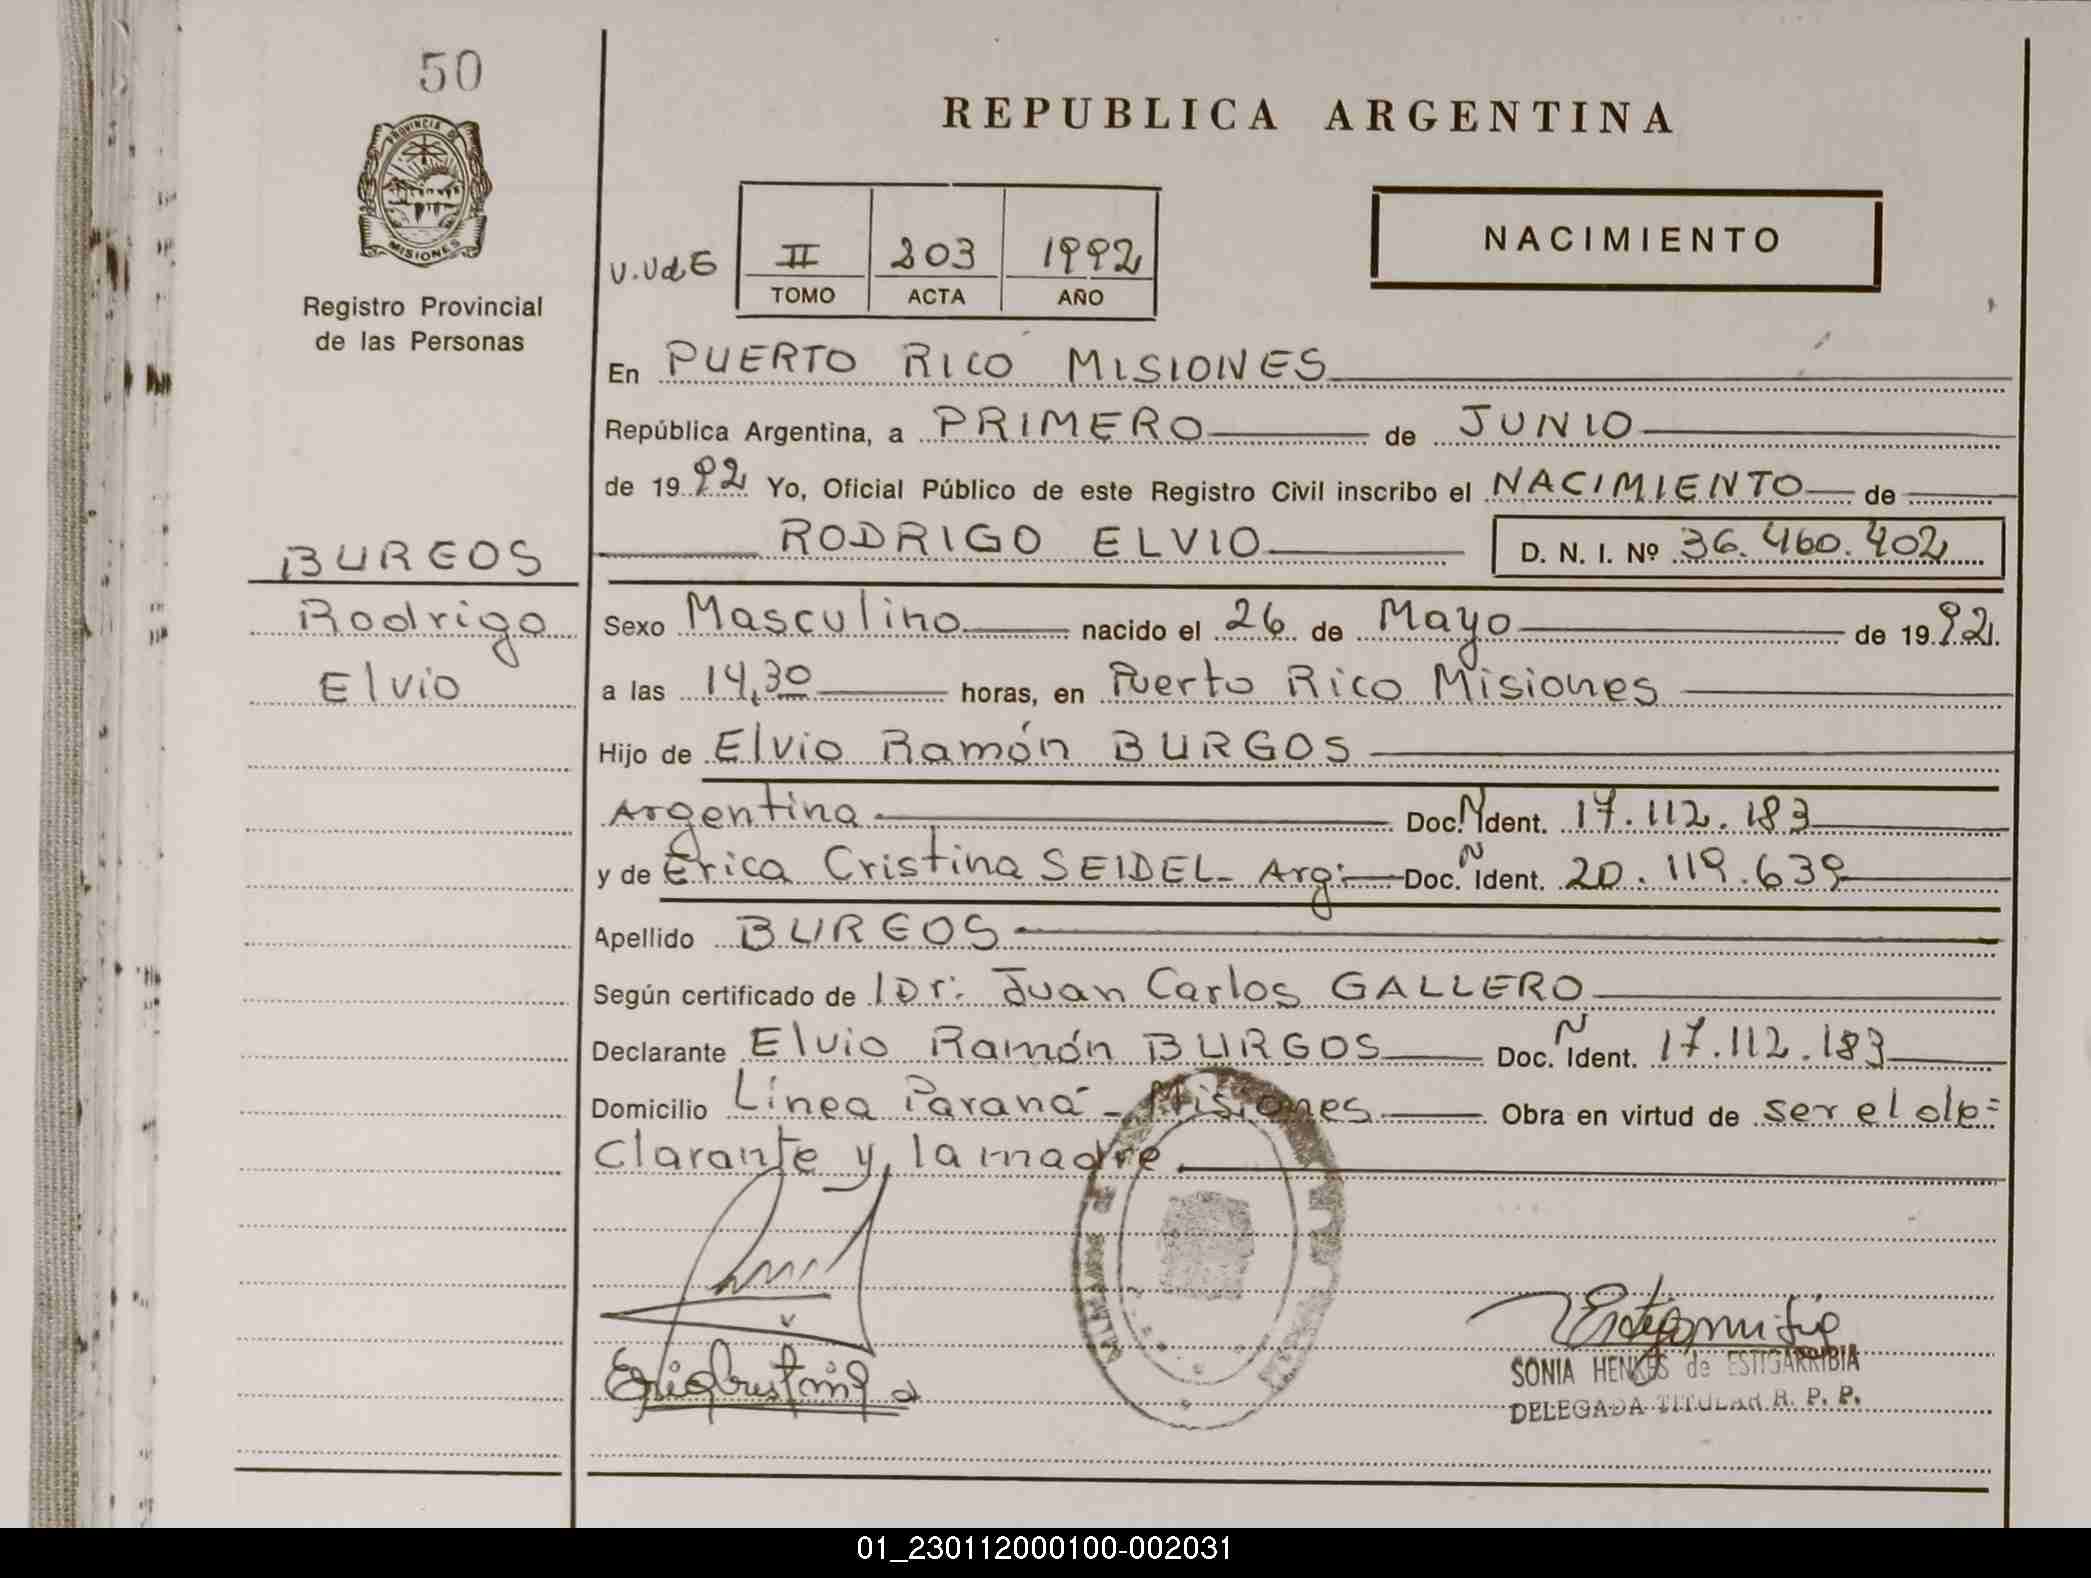 50
PROVINCIA DE
MISIONES
Registro Provincial
de las Personas
REPUBLICA ARGENTINA
NACIMIENTO
II 203 1992
TOMO ACTA AÑO
En PUERTO RICO MISIONES
República Argentina, a PRIMERO de JUNIO
de 1992 Yo, Oficial Público de este Registro Civil inscribo el NACIMIENTO de
RODRIGO ELVIO D. N. I. Nº 36.460.402
BURGOS
Rodrigo
Elvio
Sexo Masculino nacido el 26 de Mayo de 1992.
a las 14,30 horas, en Puerto Rico Misiones
Hijo de Elvio Ramón BURGOS
Argentina Doc. N Ident. 17.112.183
y de Erica Cristina SEIDEL - Arg: Doc. N Ident. 20.119.639
Apellido BURGOS
Según certificado de Dr: Juan Carlos GALLERO
Declarante Elvio Ramón BURGOS Doc. N Ident. 17.112.183
Domicilio Línea Paraná - Misiones Obra en virtud de ser el de=
clarante y la madre
SONIA HENKES de ESTIGARRIBIA
DELEGADA TITULAR R. P. P.
01_230112000100-002031